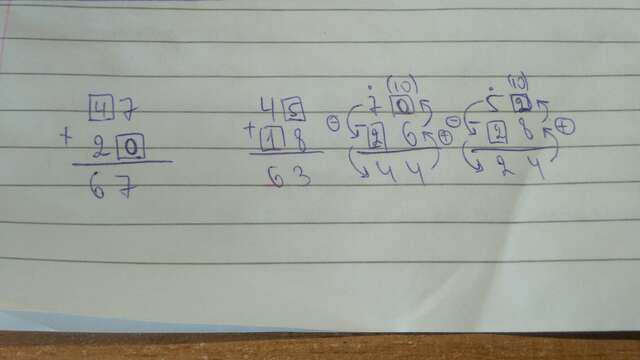 (10) (10)
4 7 4 5 7 0 5 2
+ + ⊖ ⊖
2 0 1 8 2 6 ⊕ 2 8 ⊕
6 7 6 3 4 4 2 4